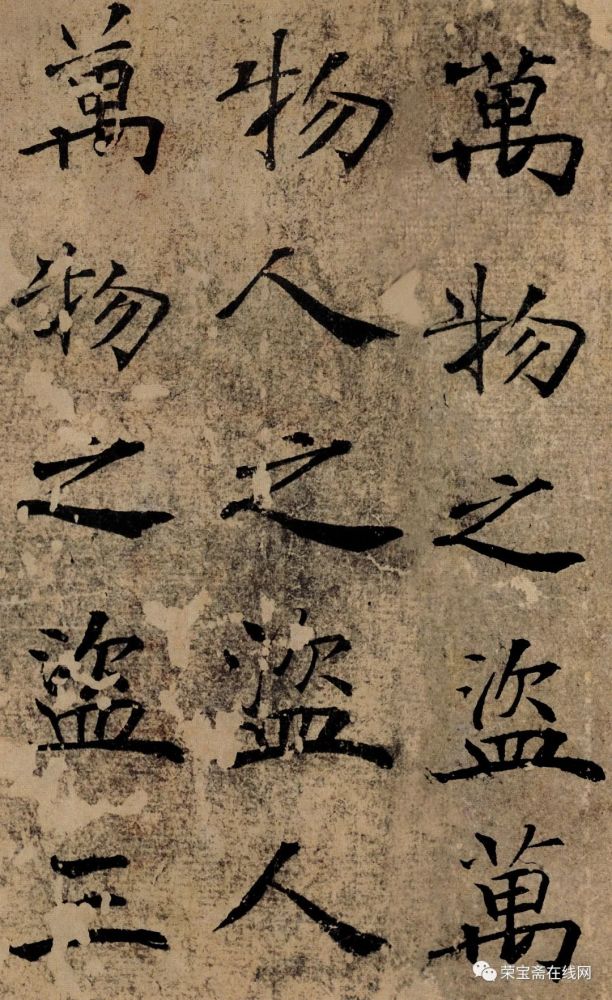 萬物之盜萬
物人之盜人
萬物之盜三
荣宝斋在线网